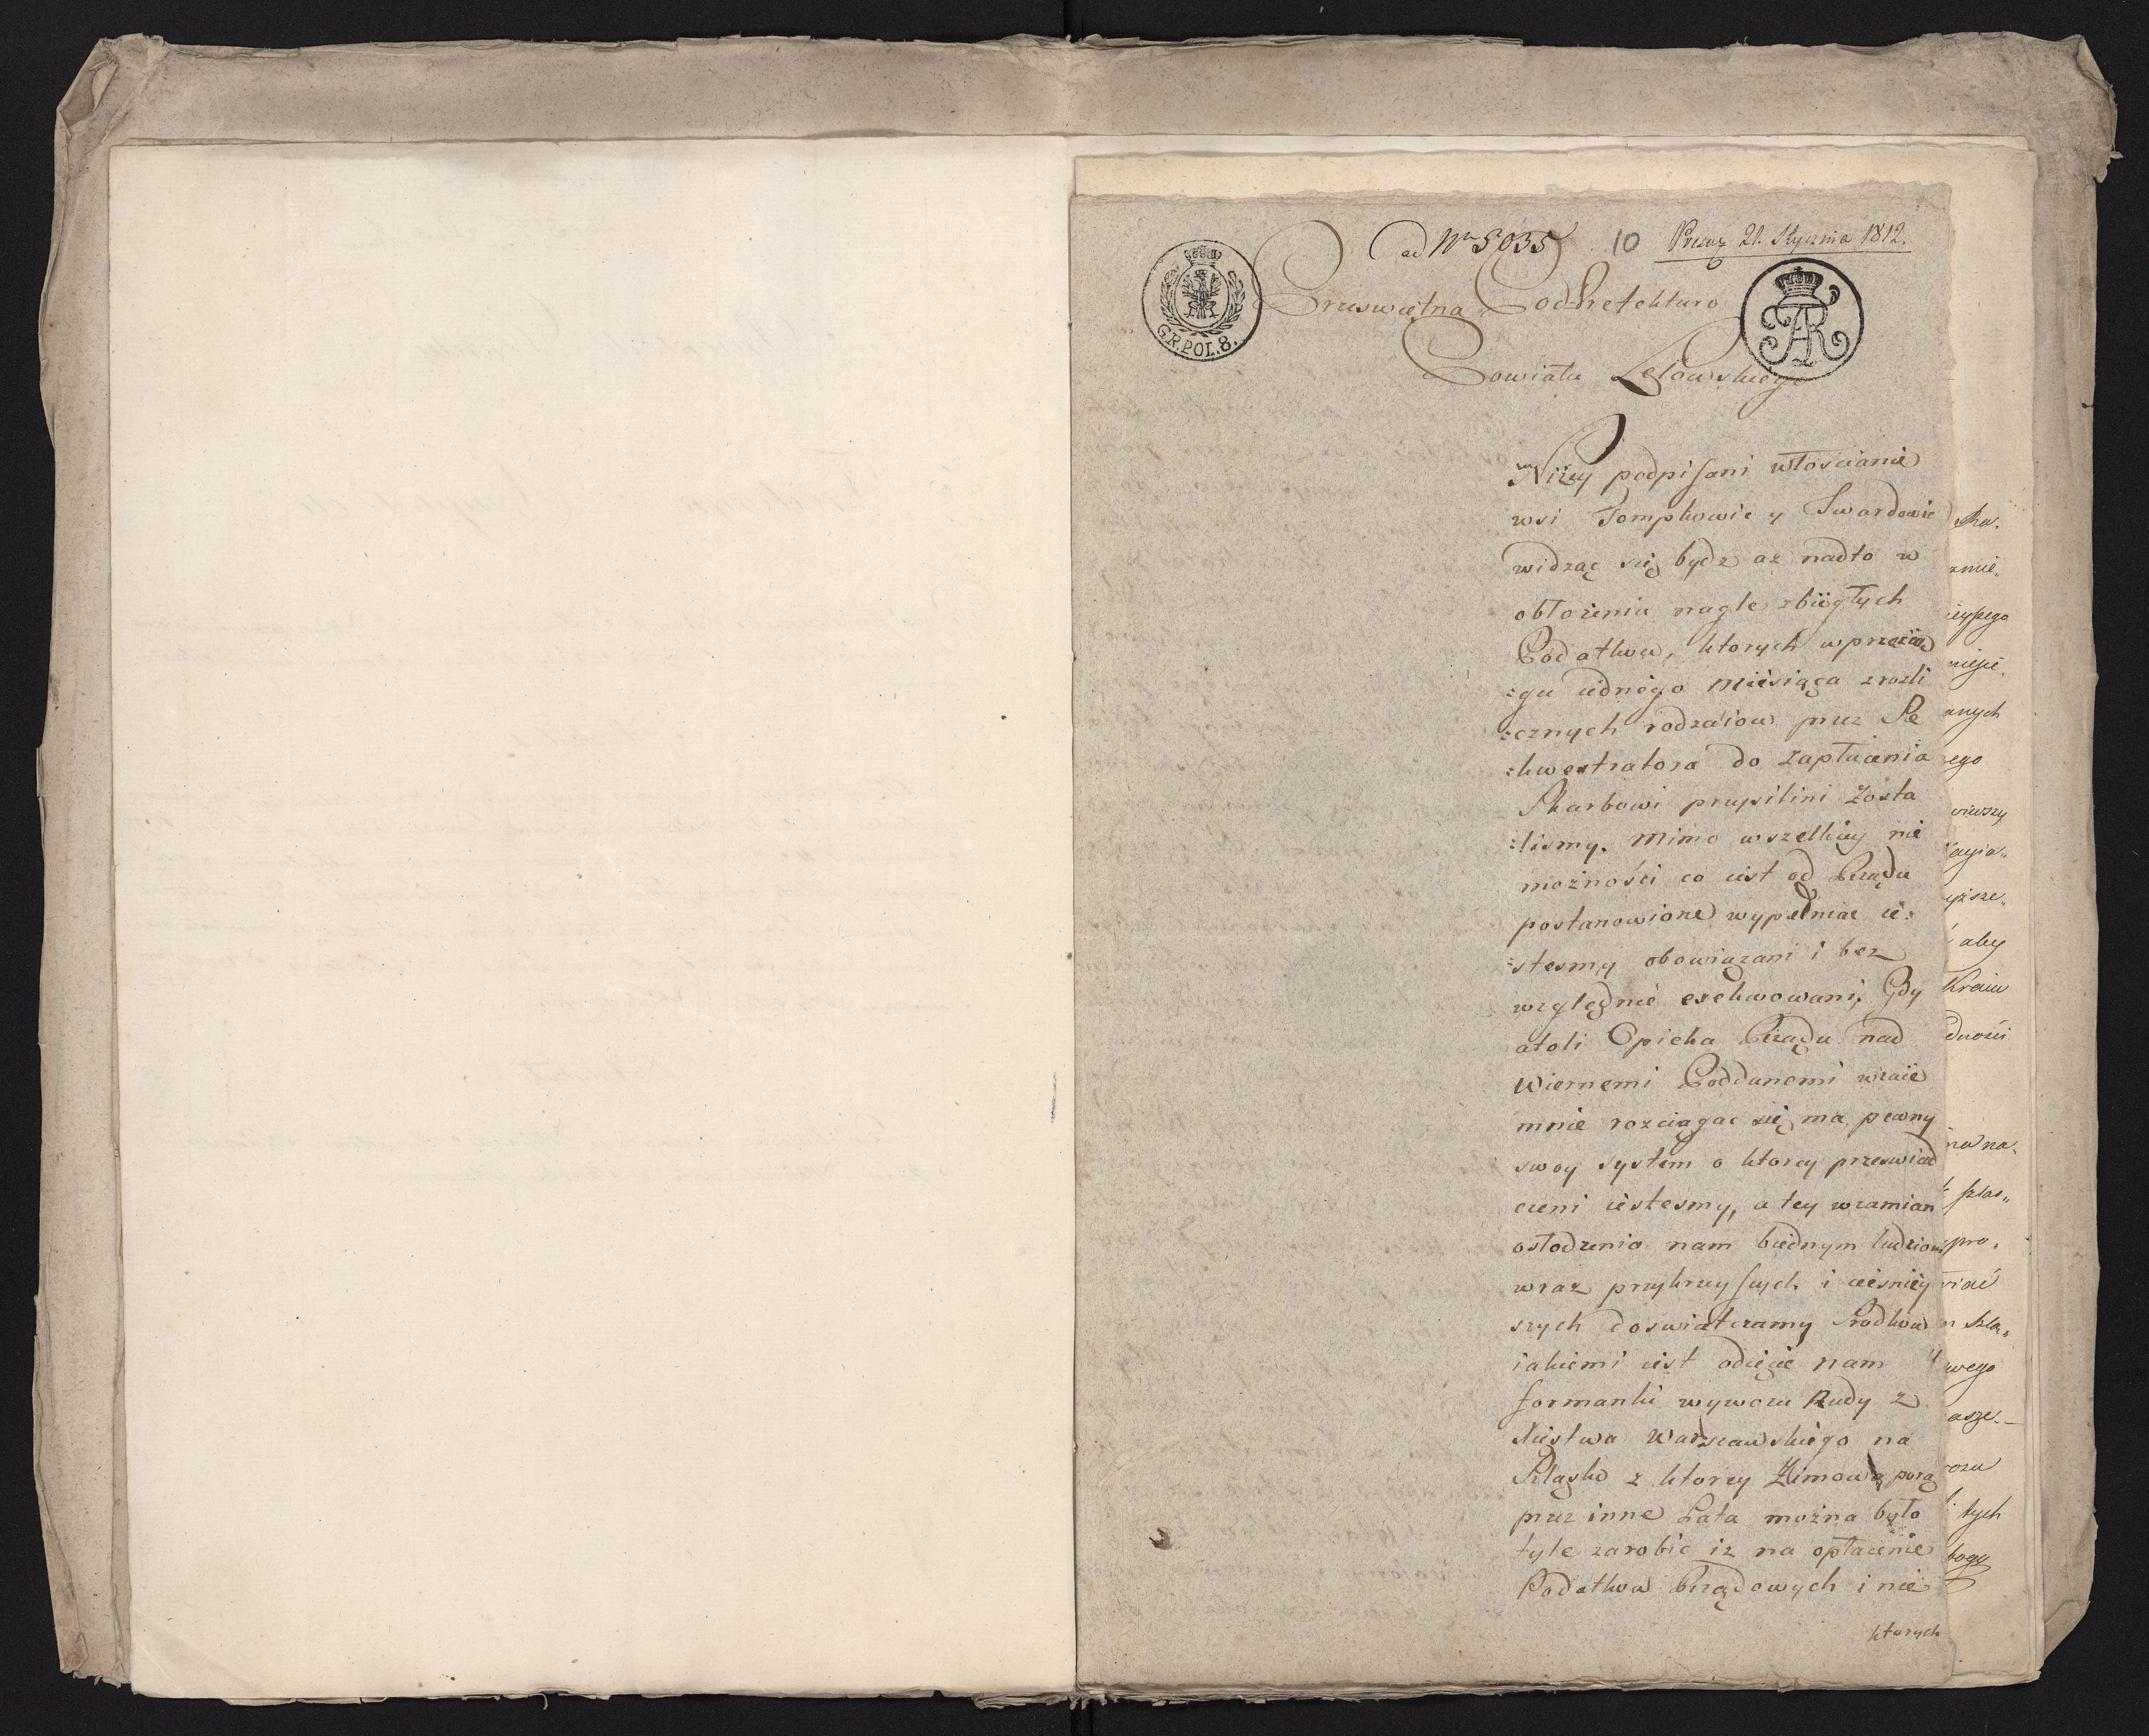 ad Nro 5035
10
Prezą 21. Stycznia 1812.
GR. POL. 8.
Przeswiętna Podprefekturo
Powiatu Lelowskiego
Niży podpisani włoscianie
wsi Tompkowic y Twardowic
widząc się bydz aż nadto w
obłożeniu nagle zbiegłych
Podatków, ktorych wprzecią
:gu iednego Miesiąca z rozli
:cznych rodzaiow przez Se
:kwestratora do zapłacenia
Skarbowi przysileni Zosta
:lismy. Mimo wszelkiey nie
możności co iest od Rządu
postanowione wypełniac ie:
:stesmy obowiązani i bez
względnie exekwowani, Gdy
atoli Opieka Rządu nad
Wiernemi Poddanemi wzaie
mnie rozciągac się ma pewny
swoy system o ktorey przeswiad
czeni iestesmy, a tey wzamian
osłodzenia nam biednym ludziom
wraz przykrzyszych i cieśniey
szych doswiatczamy Srodków
iakiemi iest odięcie nam
formanki wywozu Rudy z
Xięstwa Warszawskiego na
Szląsko z ktorey Zimową porą
przez inne Lata można było
tyle zarobic iż na opłacenie
Podatków Rządowych i nie
ktorych
ska.
zmie.
anych
ego
aby
Kraiu
dności
szlas„
pro.
wego
asze.
ozu
tych